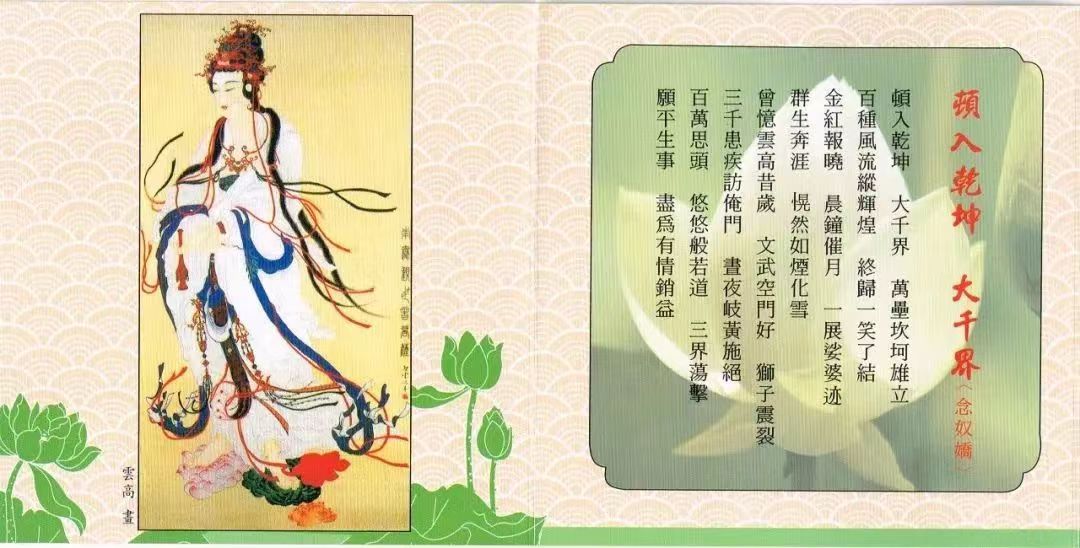 頓入乾坤　大千界（念奴嬌）
頓入乾坤　大千界　萬壘坎坷雄立
百種風流縱輝煌　終歸一笑了結
金紅報曉　晨鐘催月　一展娑婆迹
群生奔涯　愰然如煙化雪
曾憶雲高昔歲　文武空門好　獅子震裂
三千患疾訪俺門　晝夜岐黃施絕
百萬思頭　悠悠般若道　三界蕩擊
願平生事　盡爲有情銷益
雲高 畫